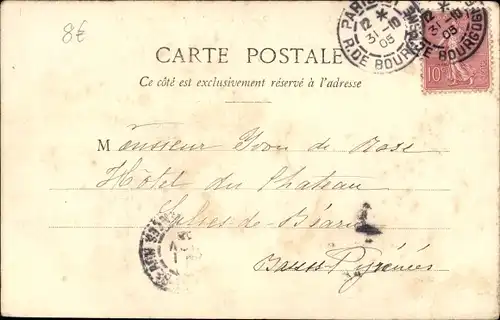 8€
PARIS
12 * 15
31 - 10
05
R. DE BOURGOGNE
12 * 15
31 - 10
05
R. DE BOURGOGNE
10
CARTE POSTALE
Ce côté est exclusivement réservé à l'adresse
Monsieur Yvon de
Hôtel du Chateau
de-Béarn
Basses-Pyrénées